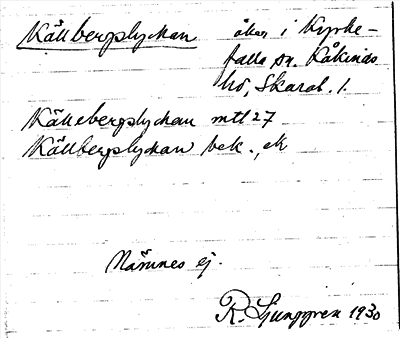 Källbergslyckan åker i Kyrke-
falla sn. Kåkinds
hd, Skarab. l.
Källebergslyckan mtl 27
Källbergslyckan bek., ek
Nämnes ej.
R. Ljunggren 1930